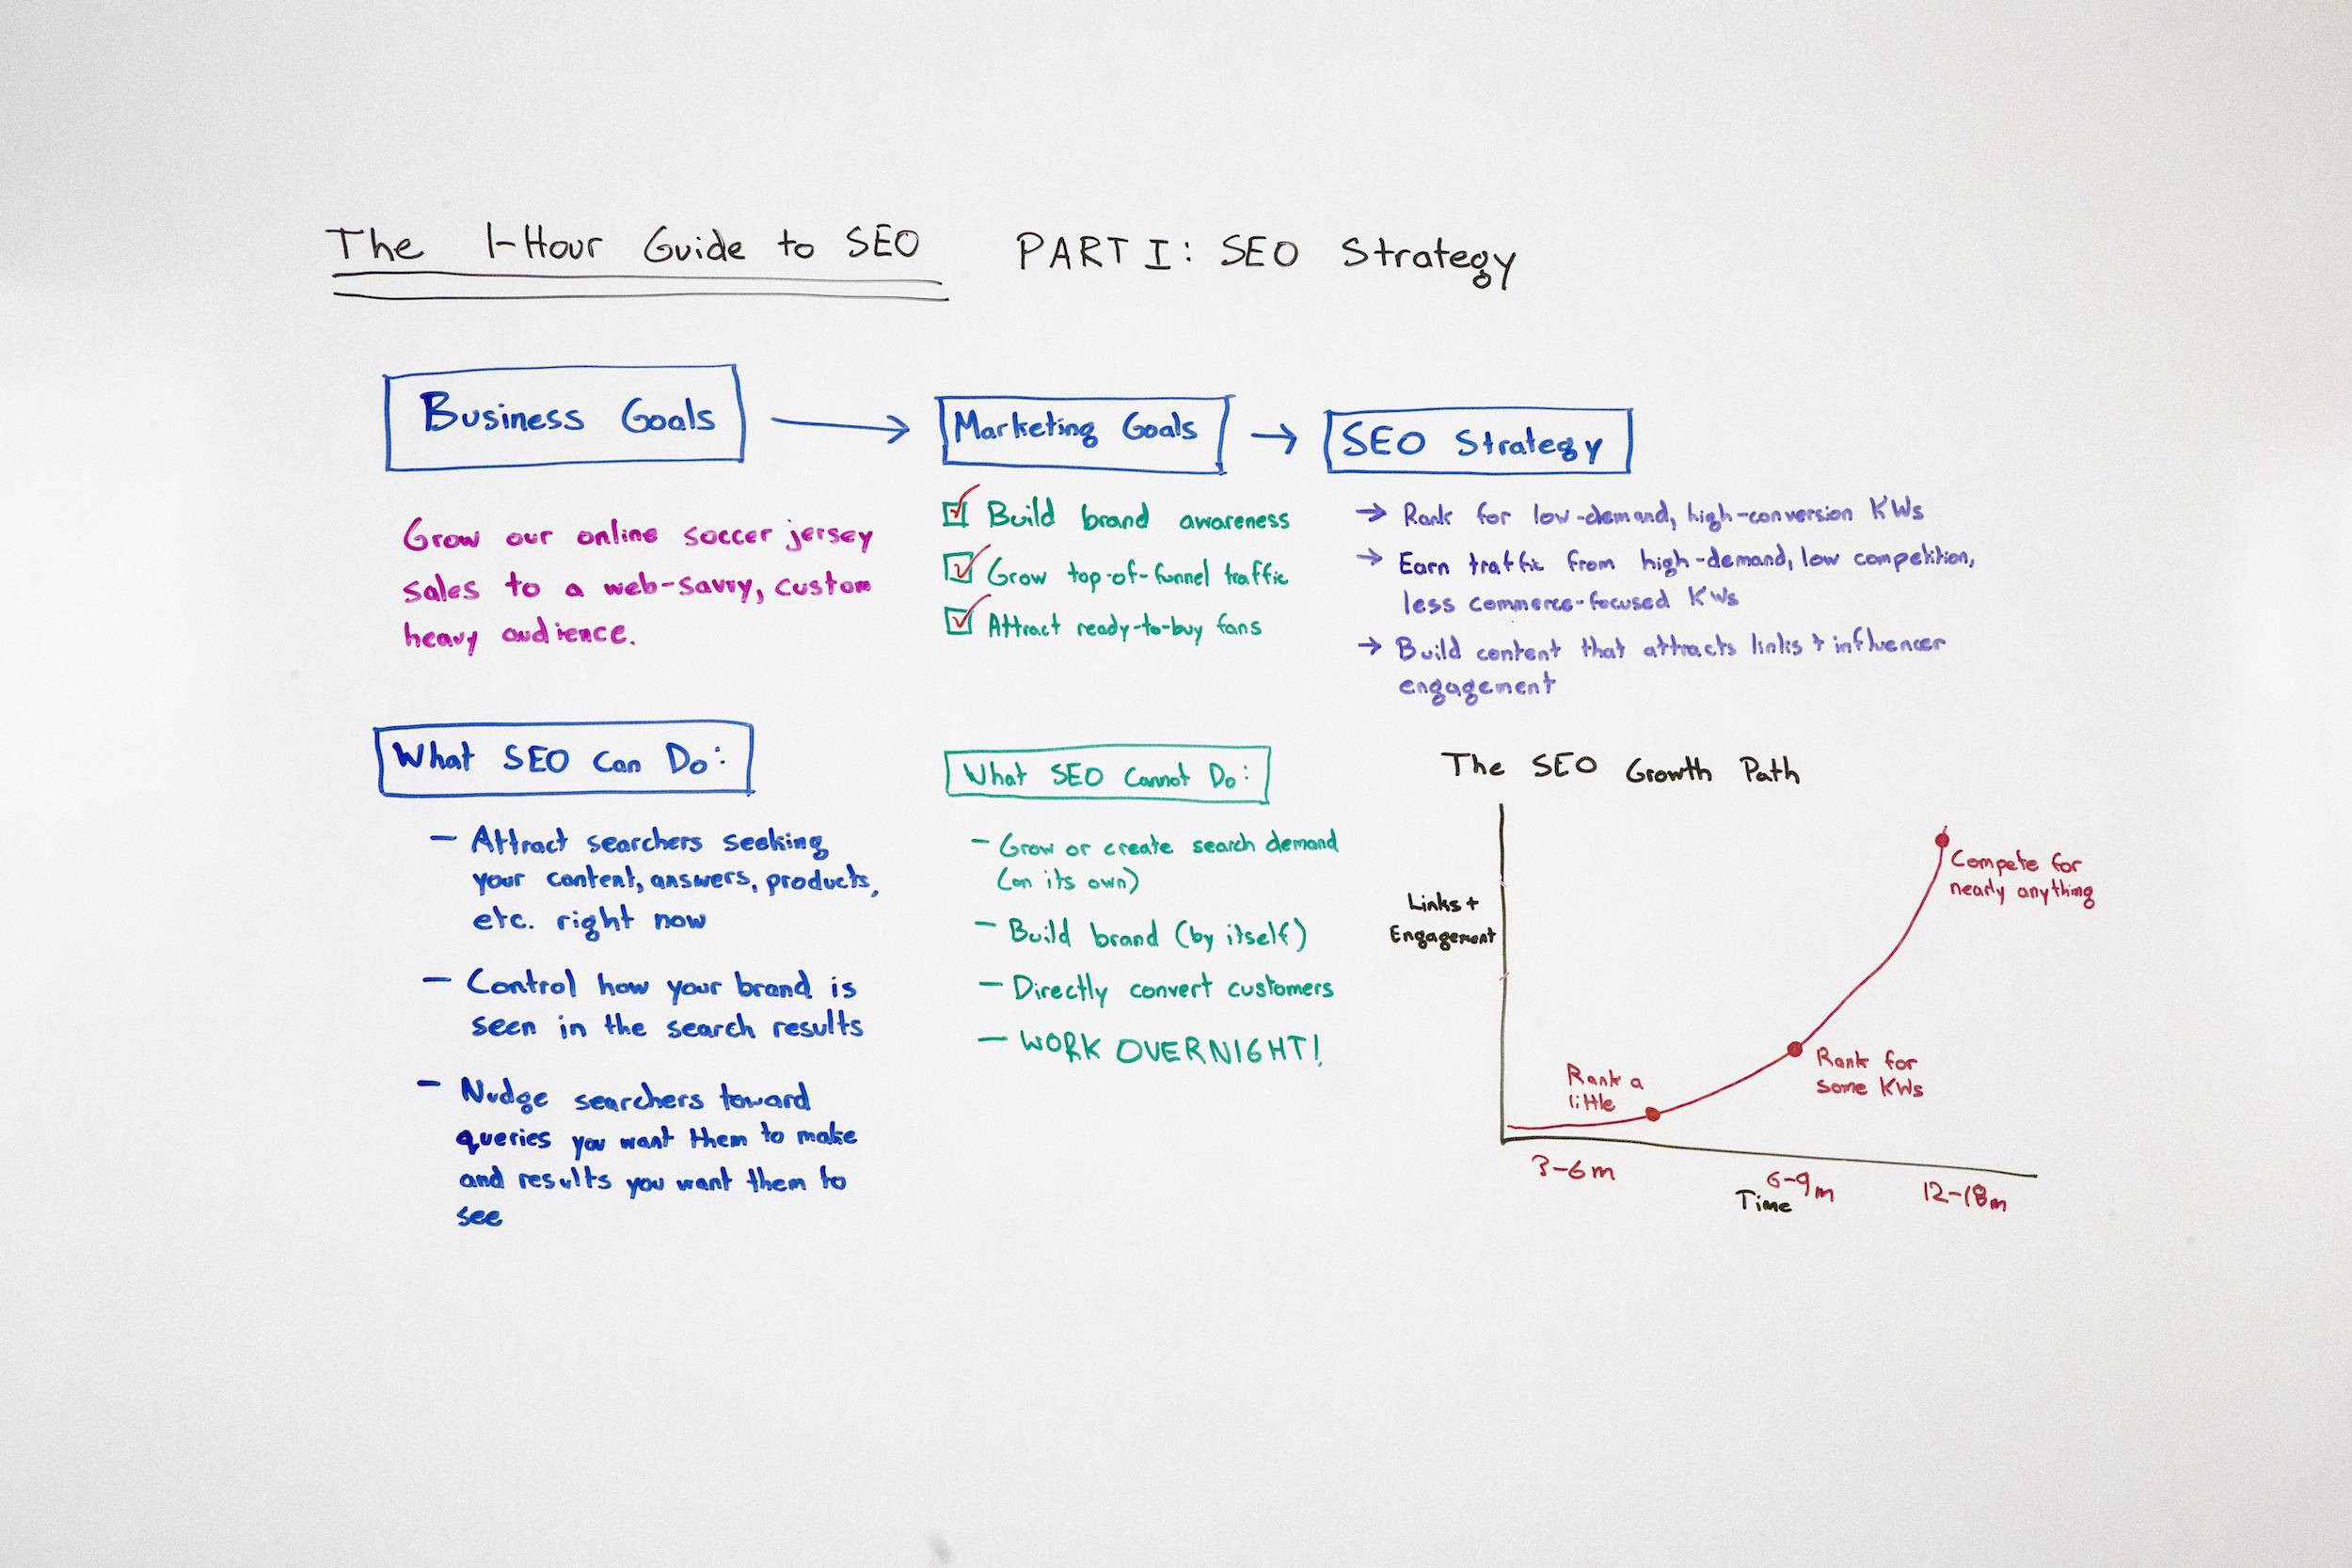 The 1-Hour Guide to SEO PART I: SEO Strategy
Business Goals
Grow our online soccer jersey
sales to a web-savvy, custom
heavy audience.
Marketing Goals
Build brand awareness
Grow top-of-funnel traffic
Attract ready-to-buy fans
SEO Strategy
→ Rank for low-demand, high-conversion KWs
→ Earn traffic from high-demand, low competition,
less commerce-focused KWs
→ Build content that attracts links + influencer
engagement
What SEO Can Do:
— Attract searchers seeking
your content, answers, products,
etc. right now
— Control how your brand is
seen in the search results
— Nudge searchers toward
queries you want them to make
and results you want them to
see
What SEO Cannot Do:
— Grow or create search demand
(on its own)
— Build brand (by itself)
— Directly convert customers
— WORK OVERNIGHT!
The SEO Growth Path
Links +
Engagement
Compete for
nearly anything
Rank for
some KWs
Rank a
little
3-6m
6-9m
12-18m
Time